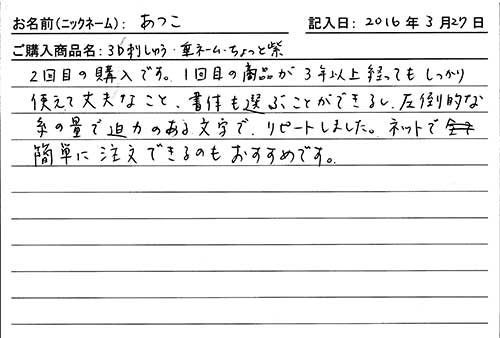 お名前(ニックネーム): あつこ 記入日: 2016年3月27日
ご購入商品名: 3D刺しゅう・重ネーム・ちょっと紫
2回目の購入です。1回目の商品が3年以上経ってもしっかり
使えて丈夫なこと、書体も選ぶことができるし、圧倒的な
糸の量で迫力のある文字で、リピートしました。ネットで
簡単に注文できるのもおすすめです。